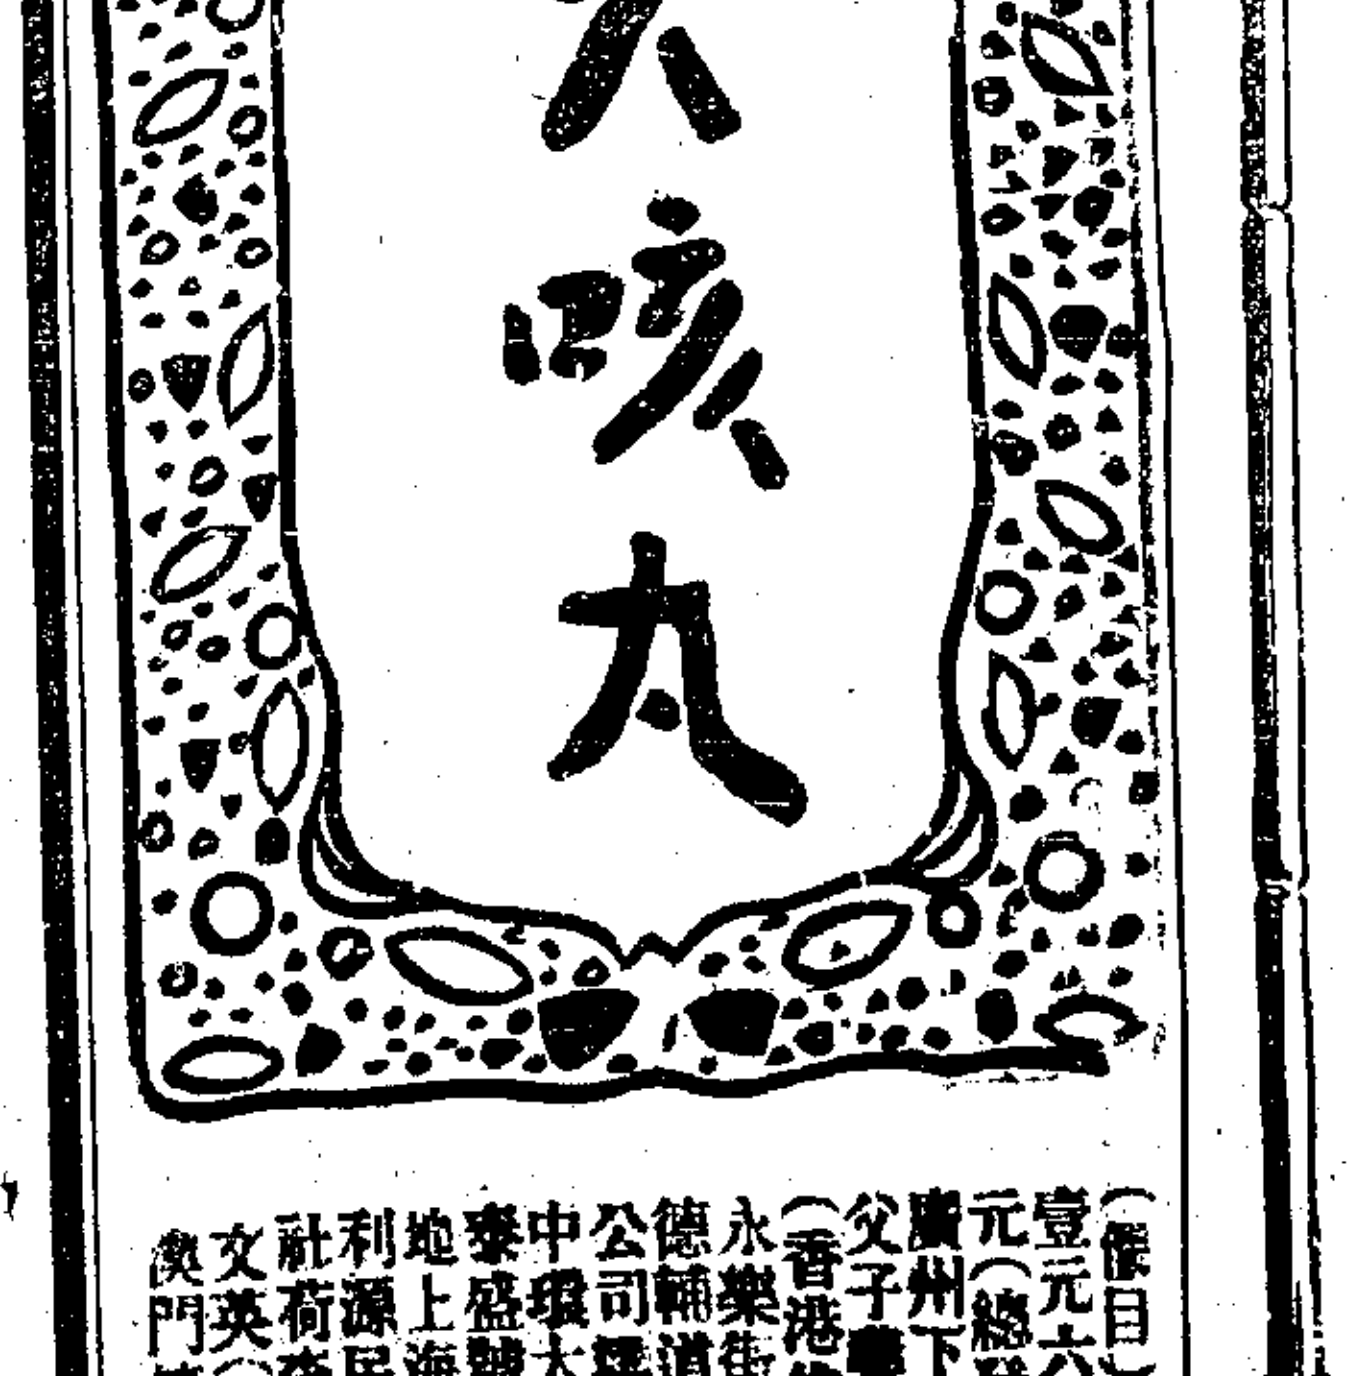 咳
丸
(價目)
壹元六
元(總發
廣州下
父子
(香港
永樂街
德輔道
公司
中環大
泰盛號
地上海
利源民
社荷李
文英(
澳門